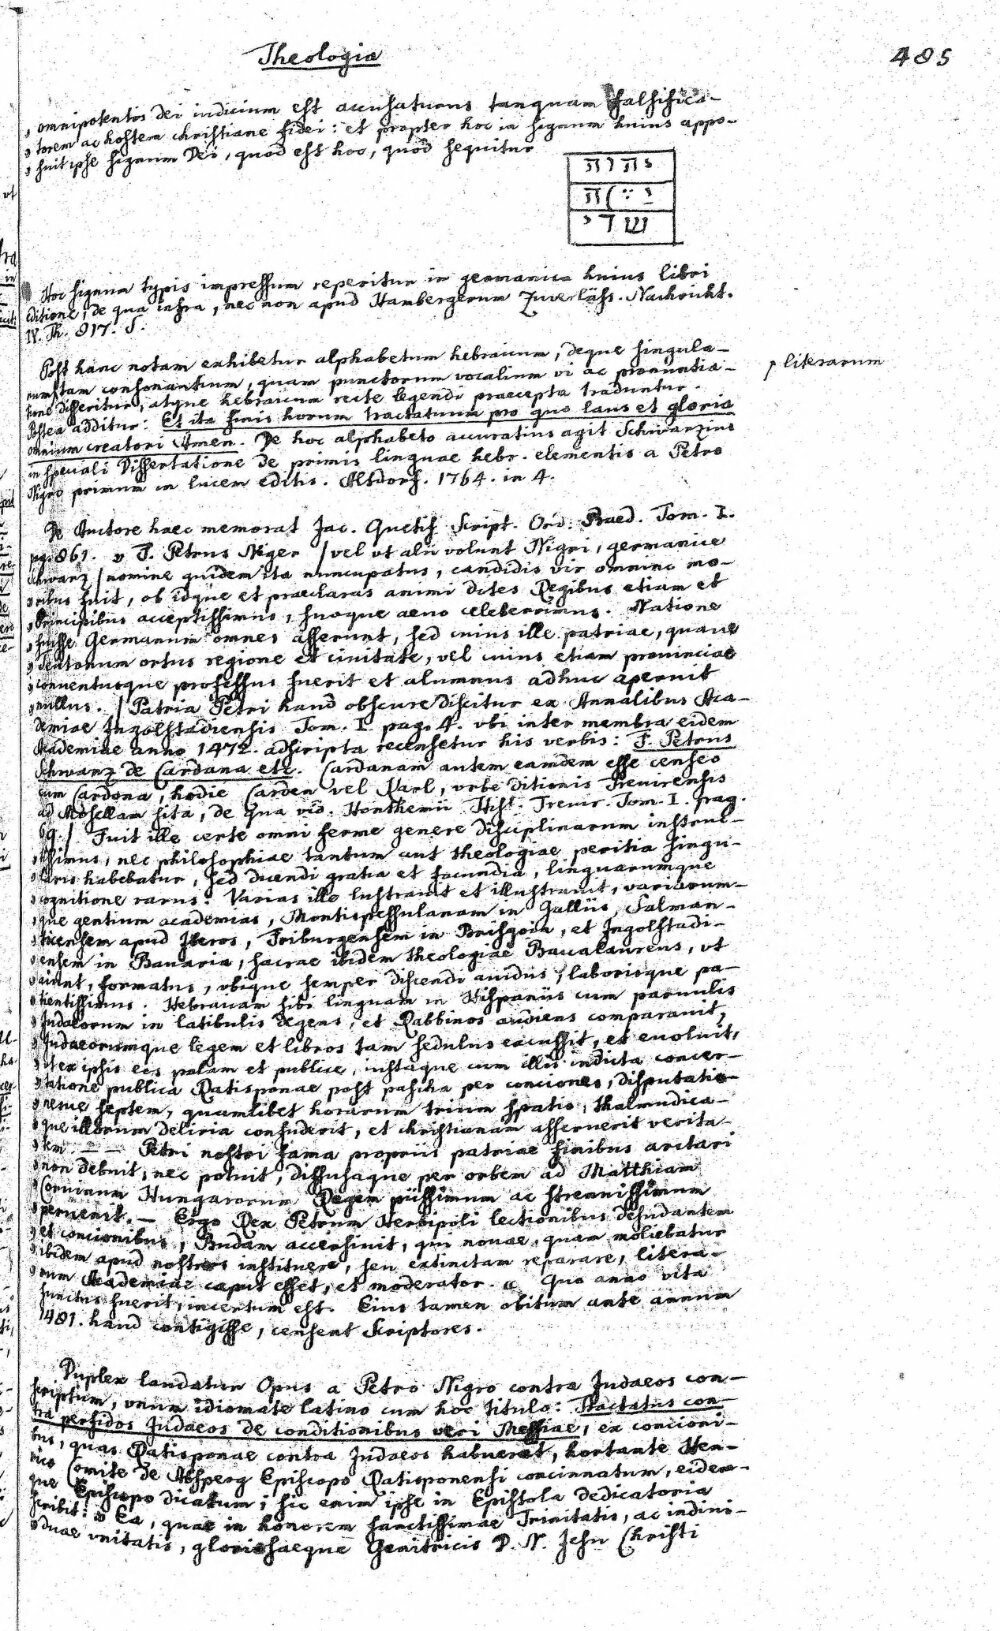 Theologia
485
„ omnipotentis Dei iudicium est accusaturus tanquam falsifica-
„ torem ac hostem christiane fidei: et propter hoc in signum huius appo-
„ suit ipse signum Dei, quod est hoc, quod sequitur
יהוה
שדי
Hoc signum typis impressum reperitur in germanica huius libri
editione, de qua infra, nec non apud Hambergerum Zuverläss. Nachricht.
IV. Th. 817. S.
Post hanc notam exhibetur alphabetum hebraicum, deque singula-
rum tam consonantium, quam punctorum vocalium vi ac pronuntia-
literarum
tione disseritur, atque hebraicum recte legendi praecepta traduntur.
Postea additur: Et ita finis horum tractatuum pro quo laus et gloria
omnium creatori Amen. De hoc alphabeto accuratius agit Schwarzius
in speciali Dissertatione de primis linguae hebr. elementis a Petro
Nigro primum in lucem editis. Altdorf. 1764. in 4.
De Auctore haec memorat Jac. Quetif Script. Ord. Praed. Tom. I.
pg. 861. „ F. Petrus Niger / vel ut alii volunt Nigri, germanice
Schwarz / nomine quidem ita nuncupatus, candidis vir omnino mo-
„ ribus fuit, ob idque et praeclaras animi dotes Regibus etiam et
„ Principibus acceptissimus, suoque aevo celeberrimus. Natione
„ fuisse Germanum omnes asserunt, sed cuius ille patriae, quave
„ Teutonum ortus regione et civitate, vel cuius etiam provinciae
„ conventusque professus fuerit et alumnus adhuc aperuit
„ nullus. / Patria Petri haud obscure discitur ex Annalibus Aca-
demiae Ingolstadiensis Tom. I. pag. 4. ubi inter membra eidem
Academiae anno 1472. adscripta recensetur his verbis: F. Petrus
Schwarz de Cardana etc. Cardanam autem eamdem esse censeo
cum Cardona, hodie Carden vel Karl, urbe ditionis Trevirensis
ad Mosellam sita, de qua vid. Honthemii Hist. Trevir. Tom. I. pag.
69. / Fuit ille certe omni ferme genere disciplinarum instruc-
„ tissimus, nec philosophiae tantum aut theologiae peritia singu-
„ laris habebatur, sed dicendi gratia et facundia, linguarumque
„ cognitione rarus. Varias ille lustravit et illustravit, variarum-
„ que gentium academias, Montispessulanam in Galliis, Salman-
„ ticensem apud Iberos, Friburgensem in Brisgoia, et Ingolstadi-
„ ensem in Bavaria, sacrae ibidem theologiae Baccalaureus, ut
„ aiunt, formatus, ubique semper discendi avidus, laborisque pa-
„ tientissimus. Hebraicam sibi linguam in Hispaniis cum parvulis
„ Judaeorum in latibulis degens, et Rabbinos audiens comparavit,
„ Judaeorumque legem et libros tam sedulus excussit, et evoluit,
„ ut ex ipsis eos palam et publice, iustaque cum illis indicta concer-
„ tatione publica Ratisponae post pascha per conciones, disputatio-
„ nesve septem, quamlibet horarum trium spatio, thalmudica-
„ que illorum deliria confuderit, et christianam asseruerit verita-
„ tem — — Petri nostri fama propriis patriae finibus arctari
„ non debuit, nec potuit, diffusaque per orbem ad Matthiam
„ Corvinum Hungarorum Regem piissimum ac strenuissimum
„ pervenit. — Ergo Rex Petrum Herbipoli lectionibus desudantem
„ et concionibus, Budam accersivit, qui novae, quam moliebatur
„ ibidem apud nostros instituere, seu extinctam reparare, litera-
„ rum Academiae caput esset, et moderator. „ Quo anno vita
functus fuerit, incertum est. Eius tamen obitum ante annum
1481. haud contigisse, censent Scriptores.
Duplex laudatur Opus a Petro Nigro contra Judaeos con-
scriptum, unum idiomate latino cum hoc titulo: Tractatus con-
tra perfidos Judaeos de conditionibus veri Messiae, ex concioni-
bus, quas Ratisponae contra Judaeos habuerat, hortante Hen-
rico Comite de Absperg Episcopo Ratisponensi concinnatum, eidem-
que Episcopo dicatum; sic enim ipse in Epistola dedicatoria
scribit: „ Ea, quae in honorem sanctissimae Trinitatis, ac indivi-
„ duae unitatis, gloriosaeque Genitricis D. N. Jesu Christi